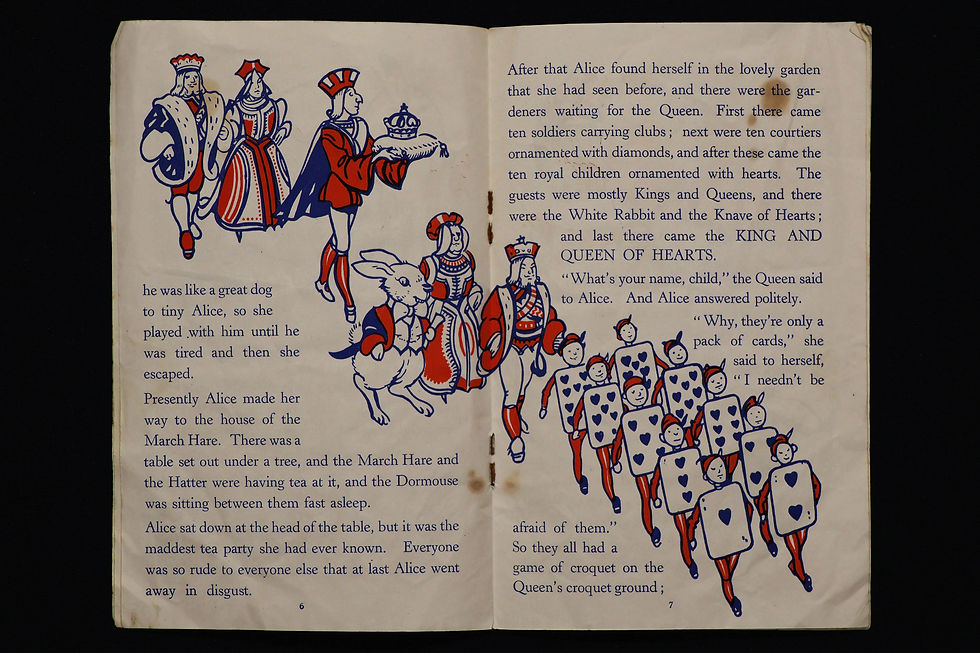 he was like a great dog
to tiny Alice, so she
played with him until he
was tired and then she
escaped.
Presently Alice made her
way to the house of the
March Hare. There was a
table set out under a tree, and the March Hare and
the Hatter were having tea at it, and the Dormouse
was sitting between them fast asleep.
Alice sat down at the head of the table, but it was the
maddest tea party she had ever known. Everyone
was so rude to everyone else that at last Alice went
away in disgust.
6
After that Alice found herself in the lovely garden
that she had seen before, and there were the gar-
deners waiting for the Queen. First there came
ten soldiers carrying clubs; next were ten courtiers
ornamented with diamonds, and after these came the
ten royal children ornamented with hearts. The
guests were mostly Kings and Queens, and there
were the White Rabbit and the Knave of Hearts;
and last there came the KING AND
QUEEN OF HEARTS.
"What's your name, child," the Queen said
to Alice. And Alice answered politely.
"Why, they're only a
pack of cards," she
said to herself,
"I needn't be
afraid of them."
So they all had a
game of croquet on the
Queen's croquet ground;
7